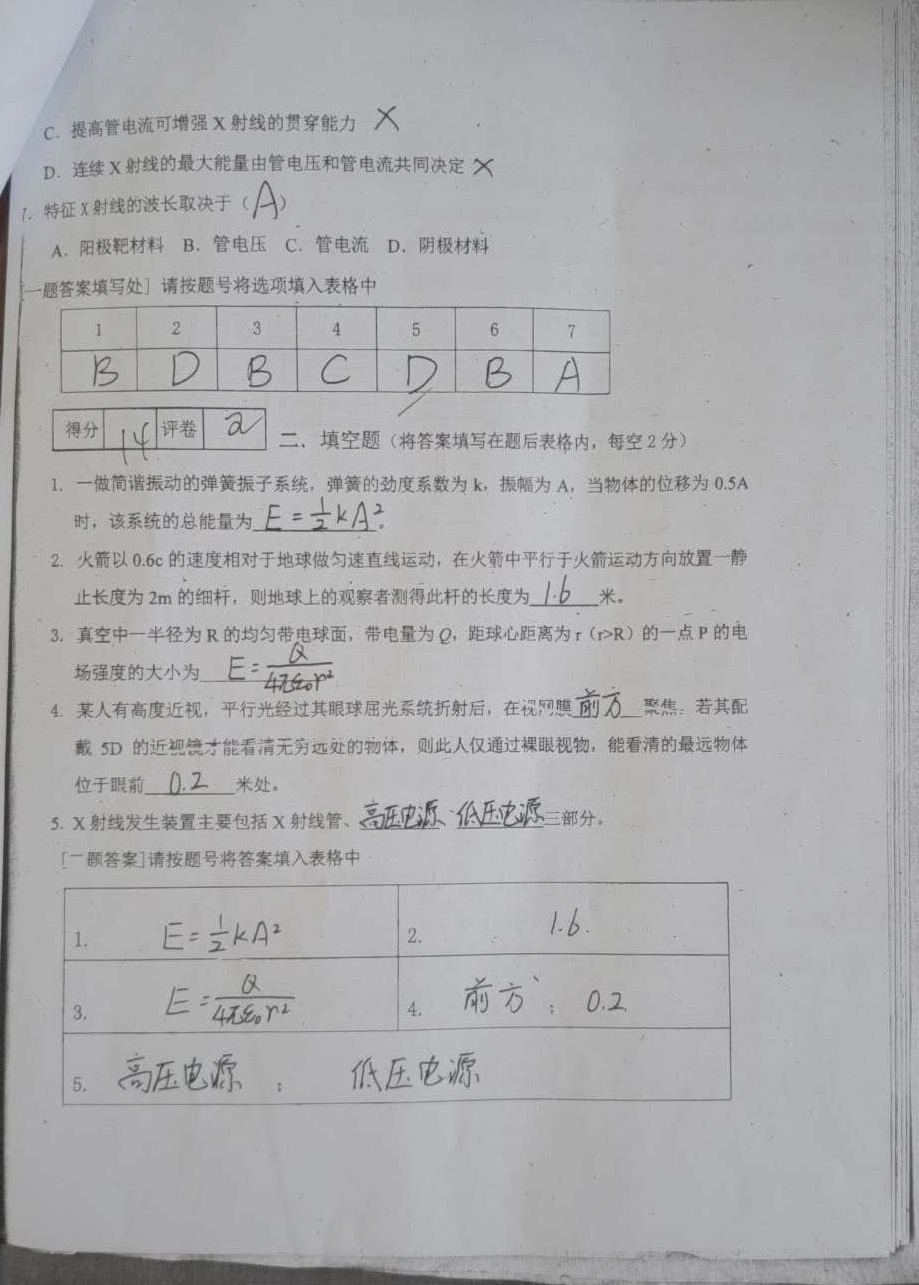 C. 提高管电流可增强 X 射线的贯穿能力 ×
D. 连续 X 射线的最大能量由管电压和管电流共同决定 ×
7. 特征 X 射线的波长取决于（A）
A. 阳极靶材料 B. 管电压 C. 管电流 D. 阴极材料
[一题答案填写处] 请按题号将选项填入表格中
1 2 3 4 5 6 7
B D B C D B A
得分 14 评卷 2 二、填空题（将答案填写在题后表格内，每空 2 分）
1. 一做简谐振动的弹簧振子系统，弹簧的劲度系数为 k，振幅为 A，当物体的位移为 0.5A
时，该系统的总能量为 E=½kA²。
2. 火箭以 0.6c 的速度相对于地球做匀速直线运动，在火箭中平行于火箭运动方向放置一静
止长度为 2m 的细杆，则地球上的观察者测得此杆的长度为 1.6 米。
3. 真空中一半径为 R 的均匀带电球面，带电量为 Q，距球心距离为 r（r>R）的一点 P 的电
场强度的大小为 E=Q/4πε₀r²
4. 某人有高度近视，平行光经过其眼球屈光系统折射后，在视网膜 前方 聚焦。若其配
戴 5D 的近视镜才能看清无穷远处的物体，则此人仅通过裸眼视物，能看清的最远物体
位于眼前 0.2 米处。
5. X 射线发生装置主要包括 X 射线管、高压电源、低压电源 三部分。
[二题答案]请按题号将答案填入表格中
1. E=½kA² 2. 1.6.
3. E=Q/4πε₀r² 4. 前方； 0.2
5. 高压电源 ； 低压电源